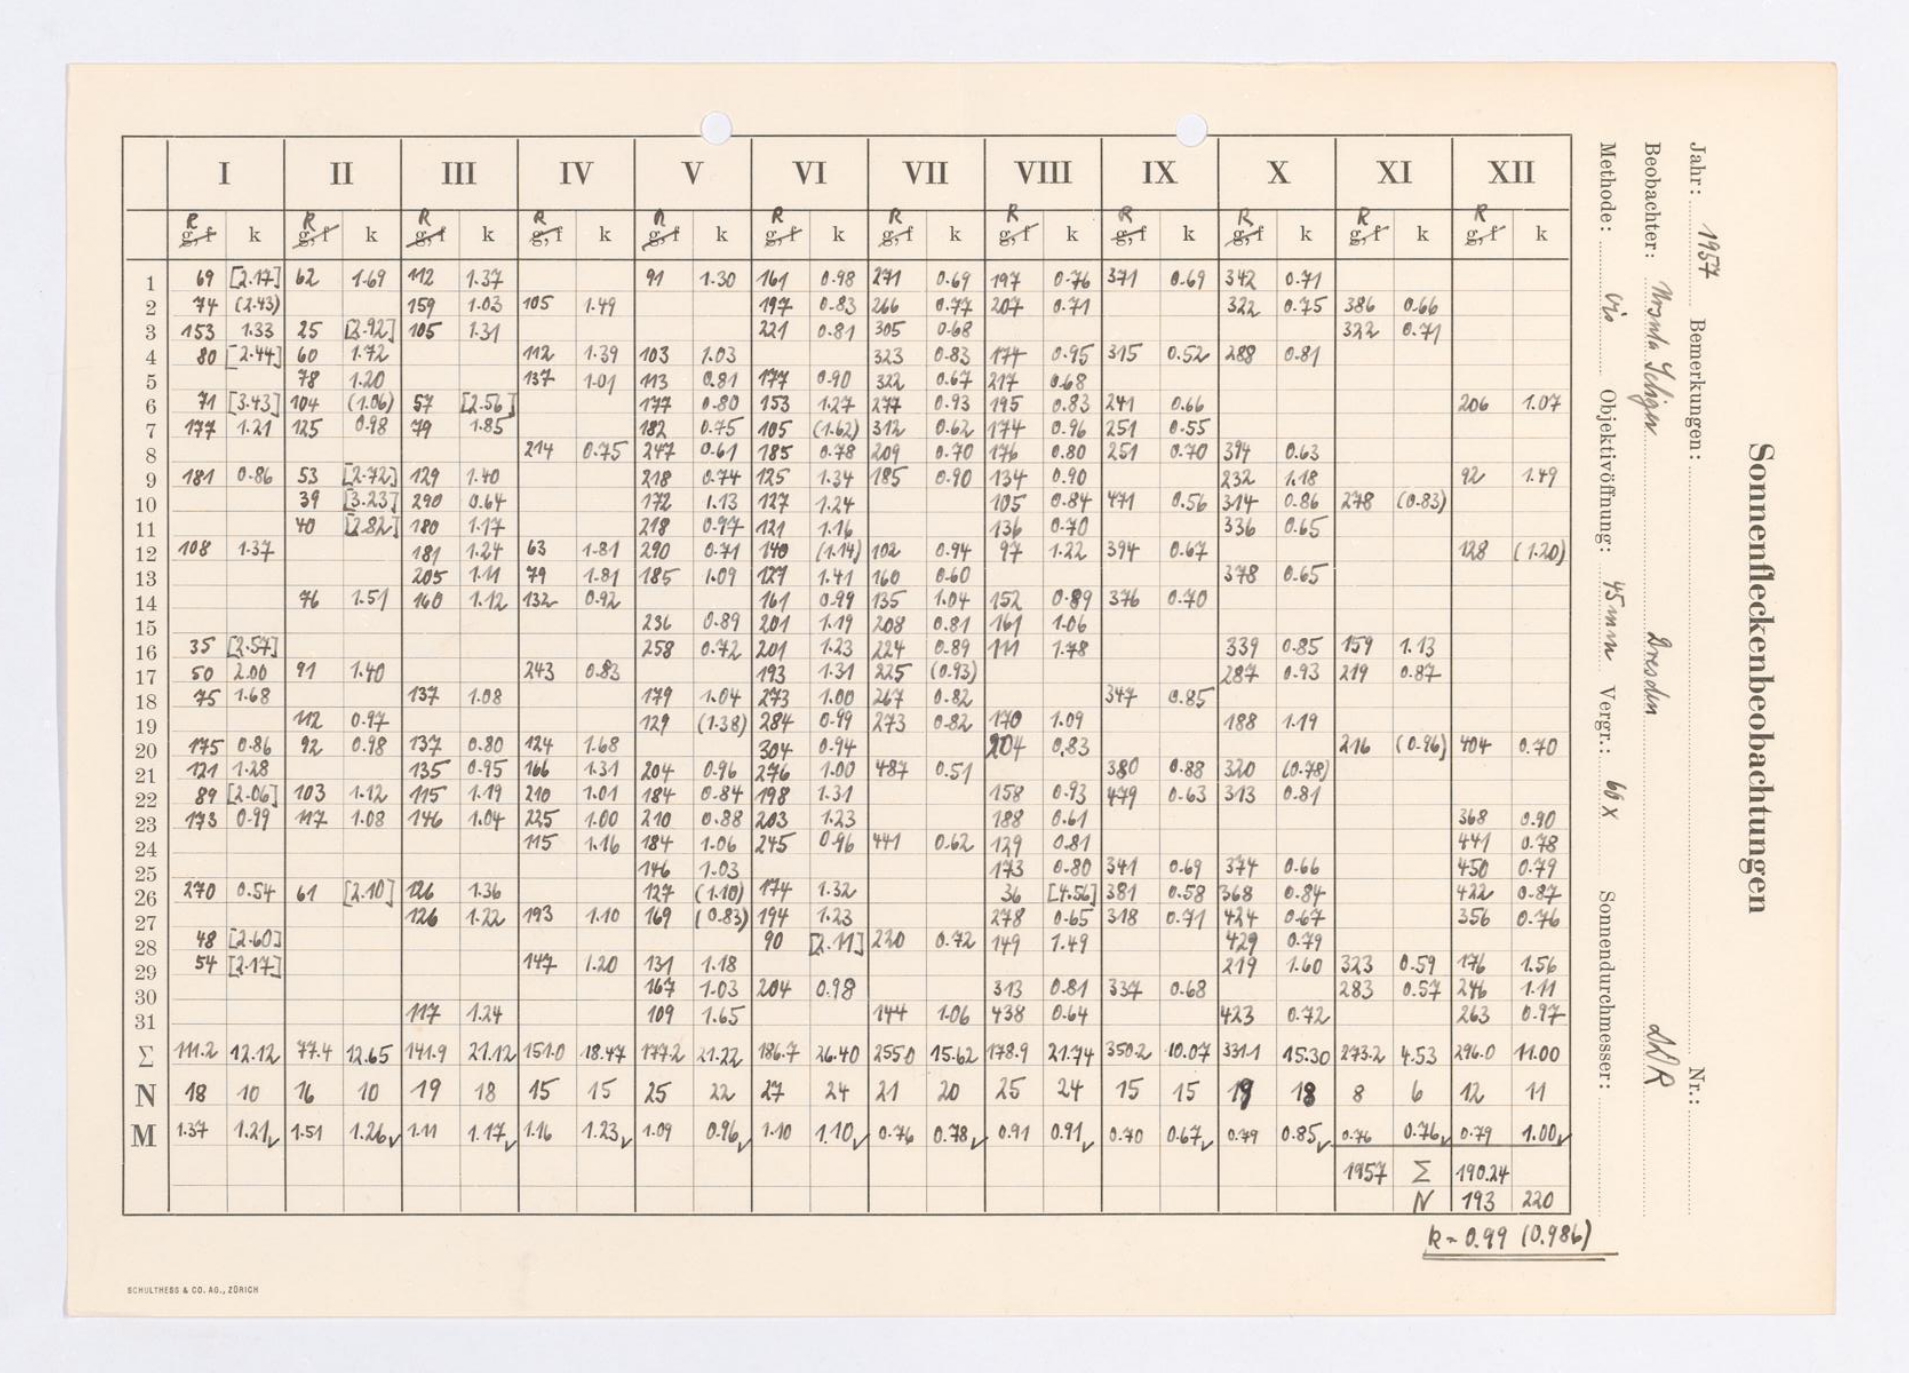 I II III IV V VI VII VIII IX X XI XII
R R R R R R R R R R R R
g, f k g, f k g, f k g, f k g, f k g, f k g, f k g, f k g, f k g, f k g, f k g, f k
1 69 [2.17] 62 1.69 112 1.37 91 1.30 161 0.98 271 0.69 197 0.76 371 0.69 342 0.71
2 74 (2.43) 159 1.03 105 1.49 197 0.83 266 0.77 207 0.71 322 0.75 386 0.66
3 153 1.33 25 [2.92] 105 1.31 221 0.81 305 0.68 322 0.71
4 80 [2.44] 60 1.72 112 1.39 103 1.03 323 0.83 174 0.95 315 0.52 288 0.81
5 78 1.20 137 1.01 113 0.81 177 0.90 322 0.67 217 0.68
6 71 [3.43] 104 (1.06) 57 [2.56] 177 0.80 153 1.27 277 0.93 195 0.83 241 0.66 206 1.07
7 177 1.21 125 0.98 79 1.85 182 0.75 105 (1.62) 312 0.62 174 0.96 251 0.55
8 214 0.75 247 0.61 185 0.78 209 0.70 176 0.80 251 0.70 394 0.63
9 181 0.86 53 [2.72] 129 1.40 218 0.74 125 1.34 185 0.90 134 0.90 232 1.18 92 1.49
10 39 [3.23] 290 0.64 172 1.13 127 1.24 105 0.84 471 0.56 314 0.86 278 (0.83)
11 40 [2.82] 180 1.17 218 0.97 121 1.16 136 0.70 336 0.65
12 108 1.37 181 1.24 63 1.81 290 0.71 140 (1.14) 102 0.94 97 1.22 394 0.67 128 (1.20)
13 205 1.11 79 1.81 185 1.09 127 1.41 160 0.60 378 0.65
14 76 1.51 160 1.12 132 0.92 161 0.99 135 1.04 152 0.89 376 0.70
15 236 0.89 201 1.19 208 0.81 161 1.06
16 35 [2.57] 258 0.72 201 1.23 224 0.89 111 1.78 339 0.85 159 1.13
17 50 2.00 91 1.40 243 0.83 193 1.31 225 (0.93) 287 0.93 219 0.87
18 75 1.68 137 1.08 179 1.04 273 1.00 267 0.82 347 0.85
19 112 0.97 129 (1.38) 284 0.99 273 0.82 170 1.09 188 1.19
20 175 0.86 92 0.98 137 0.80 124 1.68 304 0.94 204 0.83 216 (0.96) 404 0.70
21 121 1.28 135 0.95 166 1.31 204 0.96 276 1.00 487 0.51 380 0.88 320 (0.78)
22 89 [2.06] 103 1.12 115 1.19 210 1.01 184 0.84 198 1.31 158 0.93 479 0.63 313 0.81
23 173 0.99 117 1.08 146 1.04 225 1.00 210 0.88 203 1.23 188 0.61 368 0.90
24 115 1.16 184 1.06 245 0.96 441 0.62 129 0.81 441 0.78
25 146 1.03 173 0.80 341 0.69 374 0.66 450 0.79
26 270 0.54 61 [2.10] 126 1.36 127 (1.10) 174 1.32 36 [4.56] 381 0.58 368 0.84 422 0.87
27 126 1.22 193 1.10 169 (0.83) 194 1.23 278 0.65 318 0.71 424 0.67 356 0.76
28 48 [2.60] 90 [2.11] 220 0.72 149 1.49 429 0.79
29 54 [2.17] 147 1.20 131 1.18 219 1.60 323 0.59 176 1.56
30 167 1.03 204 0.98 313 0.81 337 0.68 283 0.57 246 1.11
31 117 1.24 109 1.65 144 1.06 438 0.64 423 0.72 263 0.97
Σ 111.2 12.12 77.4 12.65 141.9 21.12 151.0 18.47 177.2 21.22 186.7 26.40 255.0 15.62 178.9 21.74 350.2 10.07 331.1 15.30 273.2 4.53 296.0 11.00
N 18 10 16 10 19 18 15 15 25 22 27 24 21 20 25 24 15 15 19 18 8 6 12 11
M 1.37 1.21✓ 1.51 1.26✓ 1.11 1.17✓ 1.16 1.23✓ 1.09 0.96✓ 1.10 1.10✓ 0.76 0.78✓ 0.91 0.91✓ 0.70 0.67✓ 0.79 0.85✓ 0.76 0.76✓ 0.79 1.00✓
1957 Σ 190.24
N 193 220
k = 0.99 (0.986)
SCHULTHESS & CO. AG., ZÜRICH
Sonnenfleckenbeobachtungen
Jahr: 1957 Bemerkungen: Nr.:
Beobachter: Ursula Dresden DDR
Methode: vis Objektivöffnung: 45 mm Vergr.: 66 x Sonnendurchmesser: